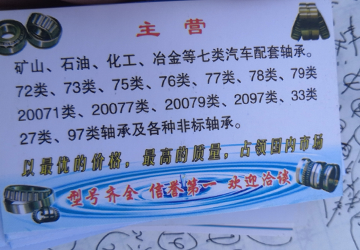 主营
矿山、石油、化工、冶金等七类汽车配套轴承。
72类、73类、75类、76类、77类、78类、79类
20071类、20077类、20079类、2097类、33类
27类、97类轴承及各种非标轴承。
以最优的价格，最高的质量，占领国内市场
型号齐全 信誉第一 欢迎洽谈